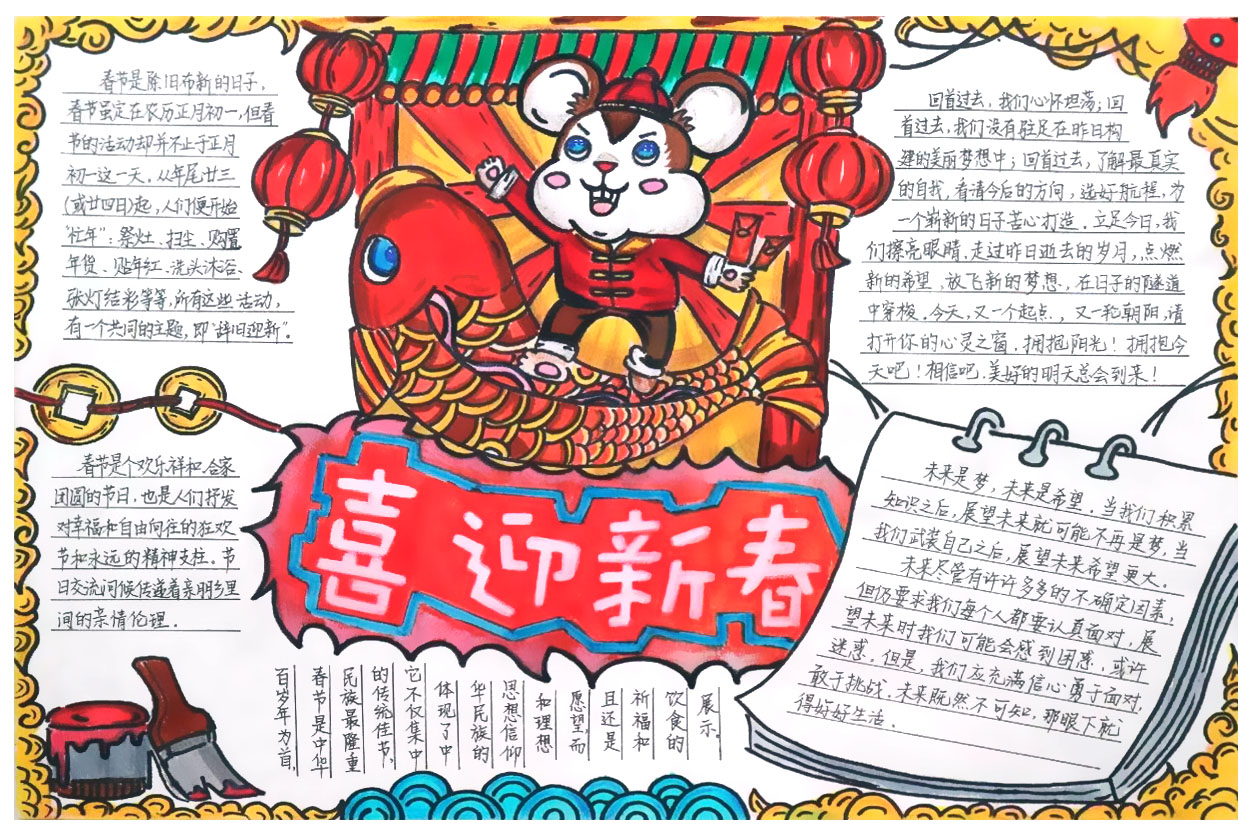 春节是除旧布新的日子，
春节虽定在农历正月初一，但春
节的活动却并不止于正月
初一这一天。从年尾廿三
(或廿四日)起，人们便开始
“忙年”：祭灶、扫尘、购置
年货、贴年红、洗头沐浴、
张灯结彩等等，所有这些活动，
有一个共同的主题，即“辞旧迎新”。
春节是个欢乐祥和、合家
团圆的节日，也是人们抒发
对幸福和自由向往的狂欢
节和永远的精神支柱。节
日交流问候传递着亲朋乡里
间的亲情伦理．
喜迎新春
百岁年为首，
春节是中华
民族最隆重
的传统佳节，
它不仅集中
体现了中
华民族的
思想信仰
和理想
愿望，而
且还是
祈福和
饮食的
展示。
回首过去，我们心怀坦荡；回
首过去，我们没有驻足在昨日构
建的美丽梦想中；回首过去，了解最真实
的自我，看清今后的方向，选好航程，为
一个崭新的日子苦心打造。立足今日，我
们擦亮眼睛，走过昨日逝去的岁月，点燃
新的希望，放飞新的梦想，在日子的隧道
中穿梭。今天，又一个起点，又一轮朝阳，请
打开你的心灵之窗，拥抱阳光！拥抱今
天吧！相信吧，美好的明天总会到来！
未来是梦，未来是希望。当我们积累
知识之后，展望未来就可能不再是梦，当
我们武装自己之后，展望未来希望更大。
未来尽管有许许多多的不确定因素，
但仍要求我们每个人都要认真面对，展
望未来时我们可能会感到困惑，或许
迷惑。但是，我们应充满信心勇于面对，
敢于挑战。未来既然不可知，那眼下就
得好好生活．